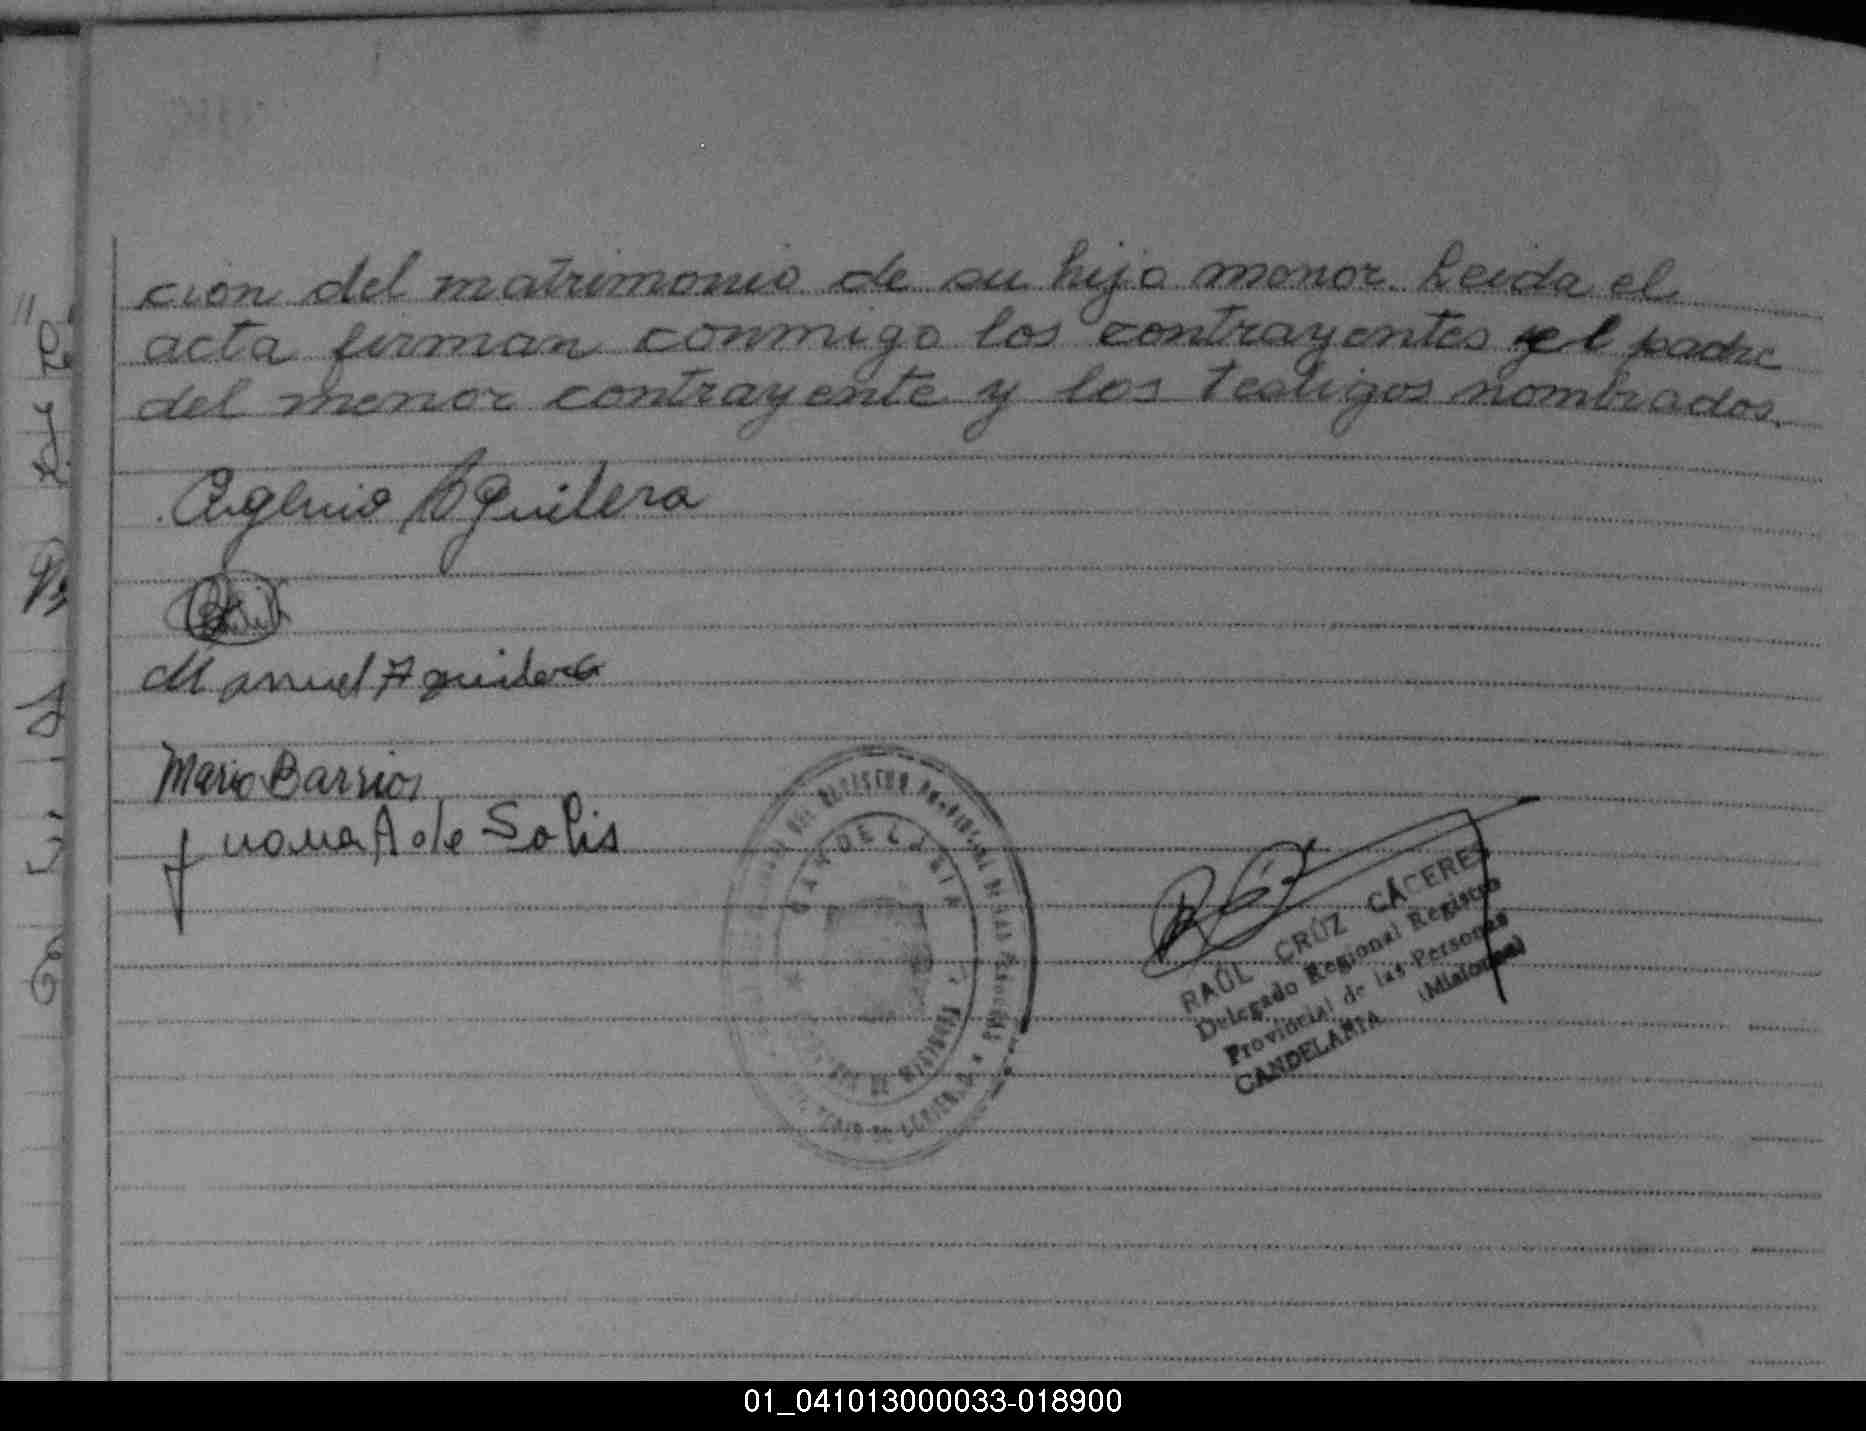 cion del matrimonio de su hijo menor. Leida el
acta firman conmigo los contrayentes el padre
del menor contrayente y los testigos nombrados.
Aguilera
Manuel Aguilera
Mario Barrios
Juana A de Solis
CANDELARIA
RAÚL CRÚZ CÁCERES
Delegado Regional Registro
Provincial de las Personas
CANDELARIA (Misiones)
01_041013000033-018900